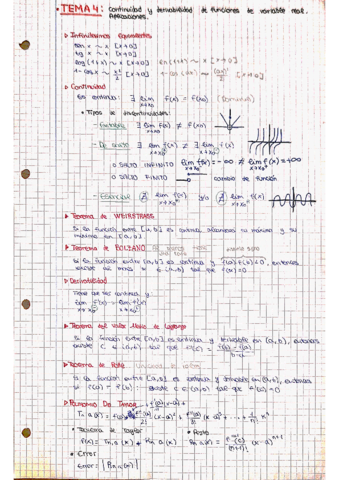 • TEMA 4: Continuidad y derivabilidad de funciones de variable real.
Aplicaciones.
▷ Infinitésimos Equivalentes
sen x ~ x [x→0]
tg x ~ x [x→0]
log (1+x) ~ x [x→0] ln (1+x) ~ x [x→0]
1 - cos x ~ x²/2 [x→0] 1 - cos (ax) ~ (ax)²/2 [x→0]
▷ Continuidad
Es continua: ∃ lim x→x₀ f(x) = f(x₀) (Demostrar)
• Tipos de discontinuidades:
- Evitable ∃ lim x→x₀ f(x) ≠ f(x₀)
- De salto ∃ lim x→x₀⁻ f(x) ≠ ∃ lim x→x₀⁺ f(x)
○ SALTO INFINITO lim f(x) = -∞ ≠ lim f(x) = +∞
○ SALTO FINITO cambio de función
- Esencial ∄ lim x→x₀⁻ f(x) y/o ∄ lim x→x₀⁺ f(x)
▷ Teorema de WEIERSTRASS
Si la función entre [a,b] es continua, alcanzará su máximo y su
mínimo en [a,b]
▷ Teorema de BOLZANO
Si la función entre [a,b] es continua y f(a)·f(b)<0, entonces
existe al menos c ∈ (a,b) tal que f(c)=0
▷ Derivabilidad
Tiene que ser continua y:
lim x→x₀⁻ f'(x) = lim x→x₀⁺ f'(x)
▷ Teorema del valor Medio de Lagrange
Si la función entre [a,b] es continua y derivable en (a,b), entonces
existe c ∈ (a,b) tal que f'(c) = f(b) - f(a) / b-a
▷ Teorema de Rolle
Si la función entre [a,b] es continua y derivable en (a,b), entonces
si f(a) = f(b) existe c ∈ (a,b) tal que f'(c) = 0
▷ Polinomio De Taylor
• Teorema de Taylor • Resto
f(x) = Tn,a(x) + Rn,a(x)
• Error
Error = |Rn,a(x)|